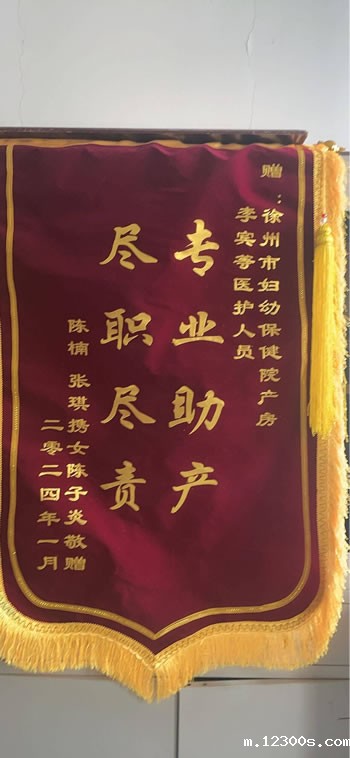 赠：徐州市妇幼保健院产房
李宾等医护人员
专业助产
尽职尽责
陈楠 张琪携女陈子炎敬赠
二零二四年一月
m.12300s.com